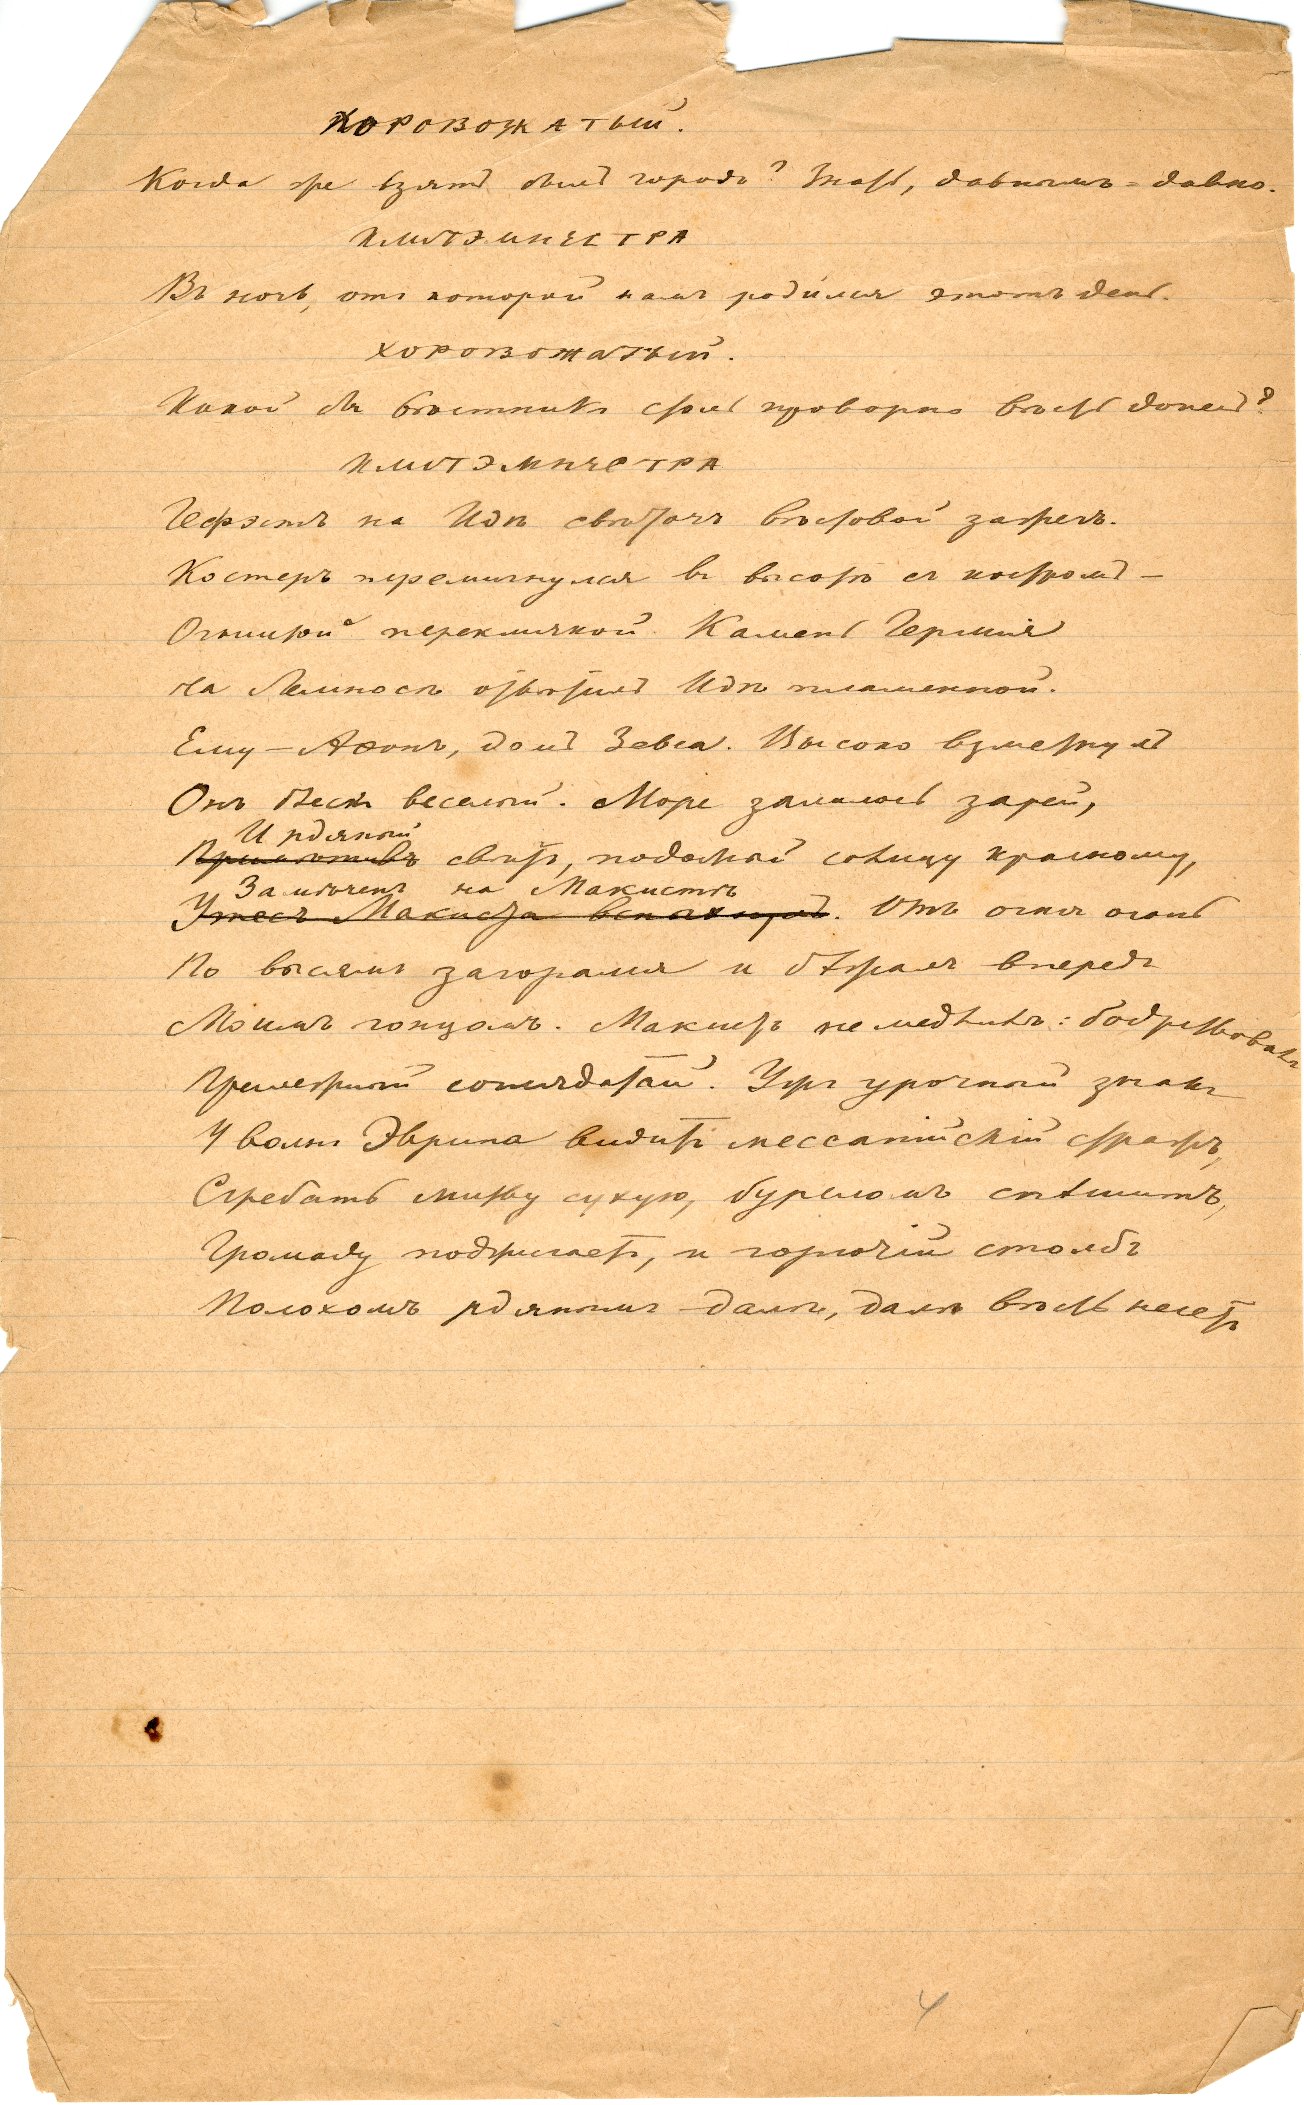 ХОРОВОЖАТЫЙ.
Когда же взятъ былъ городъ? Знать, давнымъ-давно.
КЛИТЭМНЕСТРА
Въ ночь, отъ которой намъ родился этотъ день.
ХОРОВОЖАТЫЙ.
Какой бы вѣстникъ столь проворно вѣсть донесъ?
КЛИТЭМНЕСТРА
Гефэстъ на Идѣ свѣточъ вѣстовой зажегъ.
Костеръ перемигнулся въ высотѣ съ костромъ —
Огнистой перекличкой. Камень Гермія
На Лемносѣ отвѣтилъ Идѣ пламенной.
Ему — Аѳонъ, домъ Зевса. Высоко взметнулъ
Онъ блескъ веселый. Море залилось зарей,
И рдяный
свѣтъ, подобный солнцу красному,
Замѣченъ на Макистѣ
Утесъ Макиста вспыхнулъ. Отъ огня огонь
По высямъ загорался и бѣжалъ впередъ
Моимъ гонцомъ. Макистъ не медлилъ: бодрствовалъ
Примѣрный соглядатай. Ужъ урочный знакъ
У волнъ Эврипа видитъ мессапійскій стражъ,
Сгребать спѣшитъ,
Громаду поджигаетъ, и горючій столбъ
Полохомъ рдянымъ далѣ, далѣ вѣсть несетъ
4